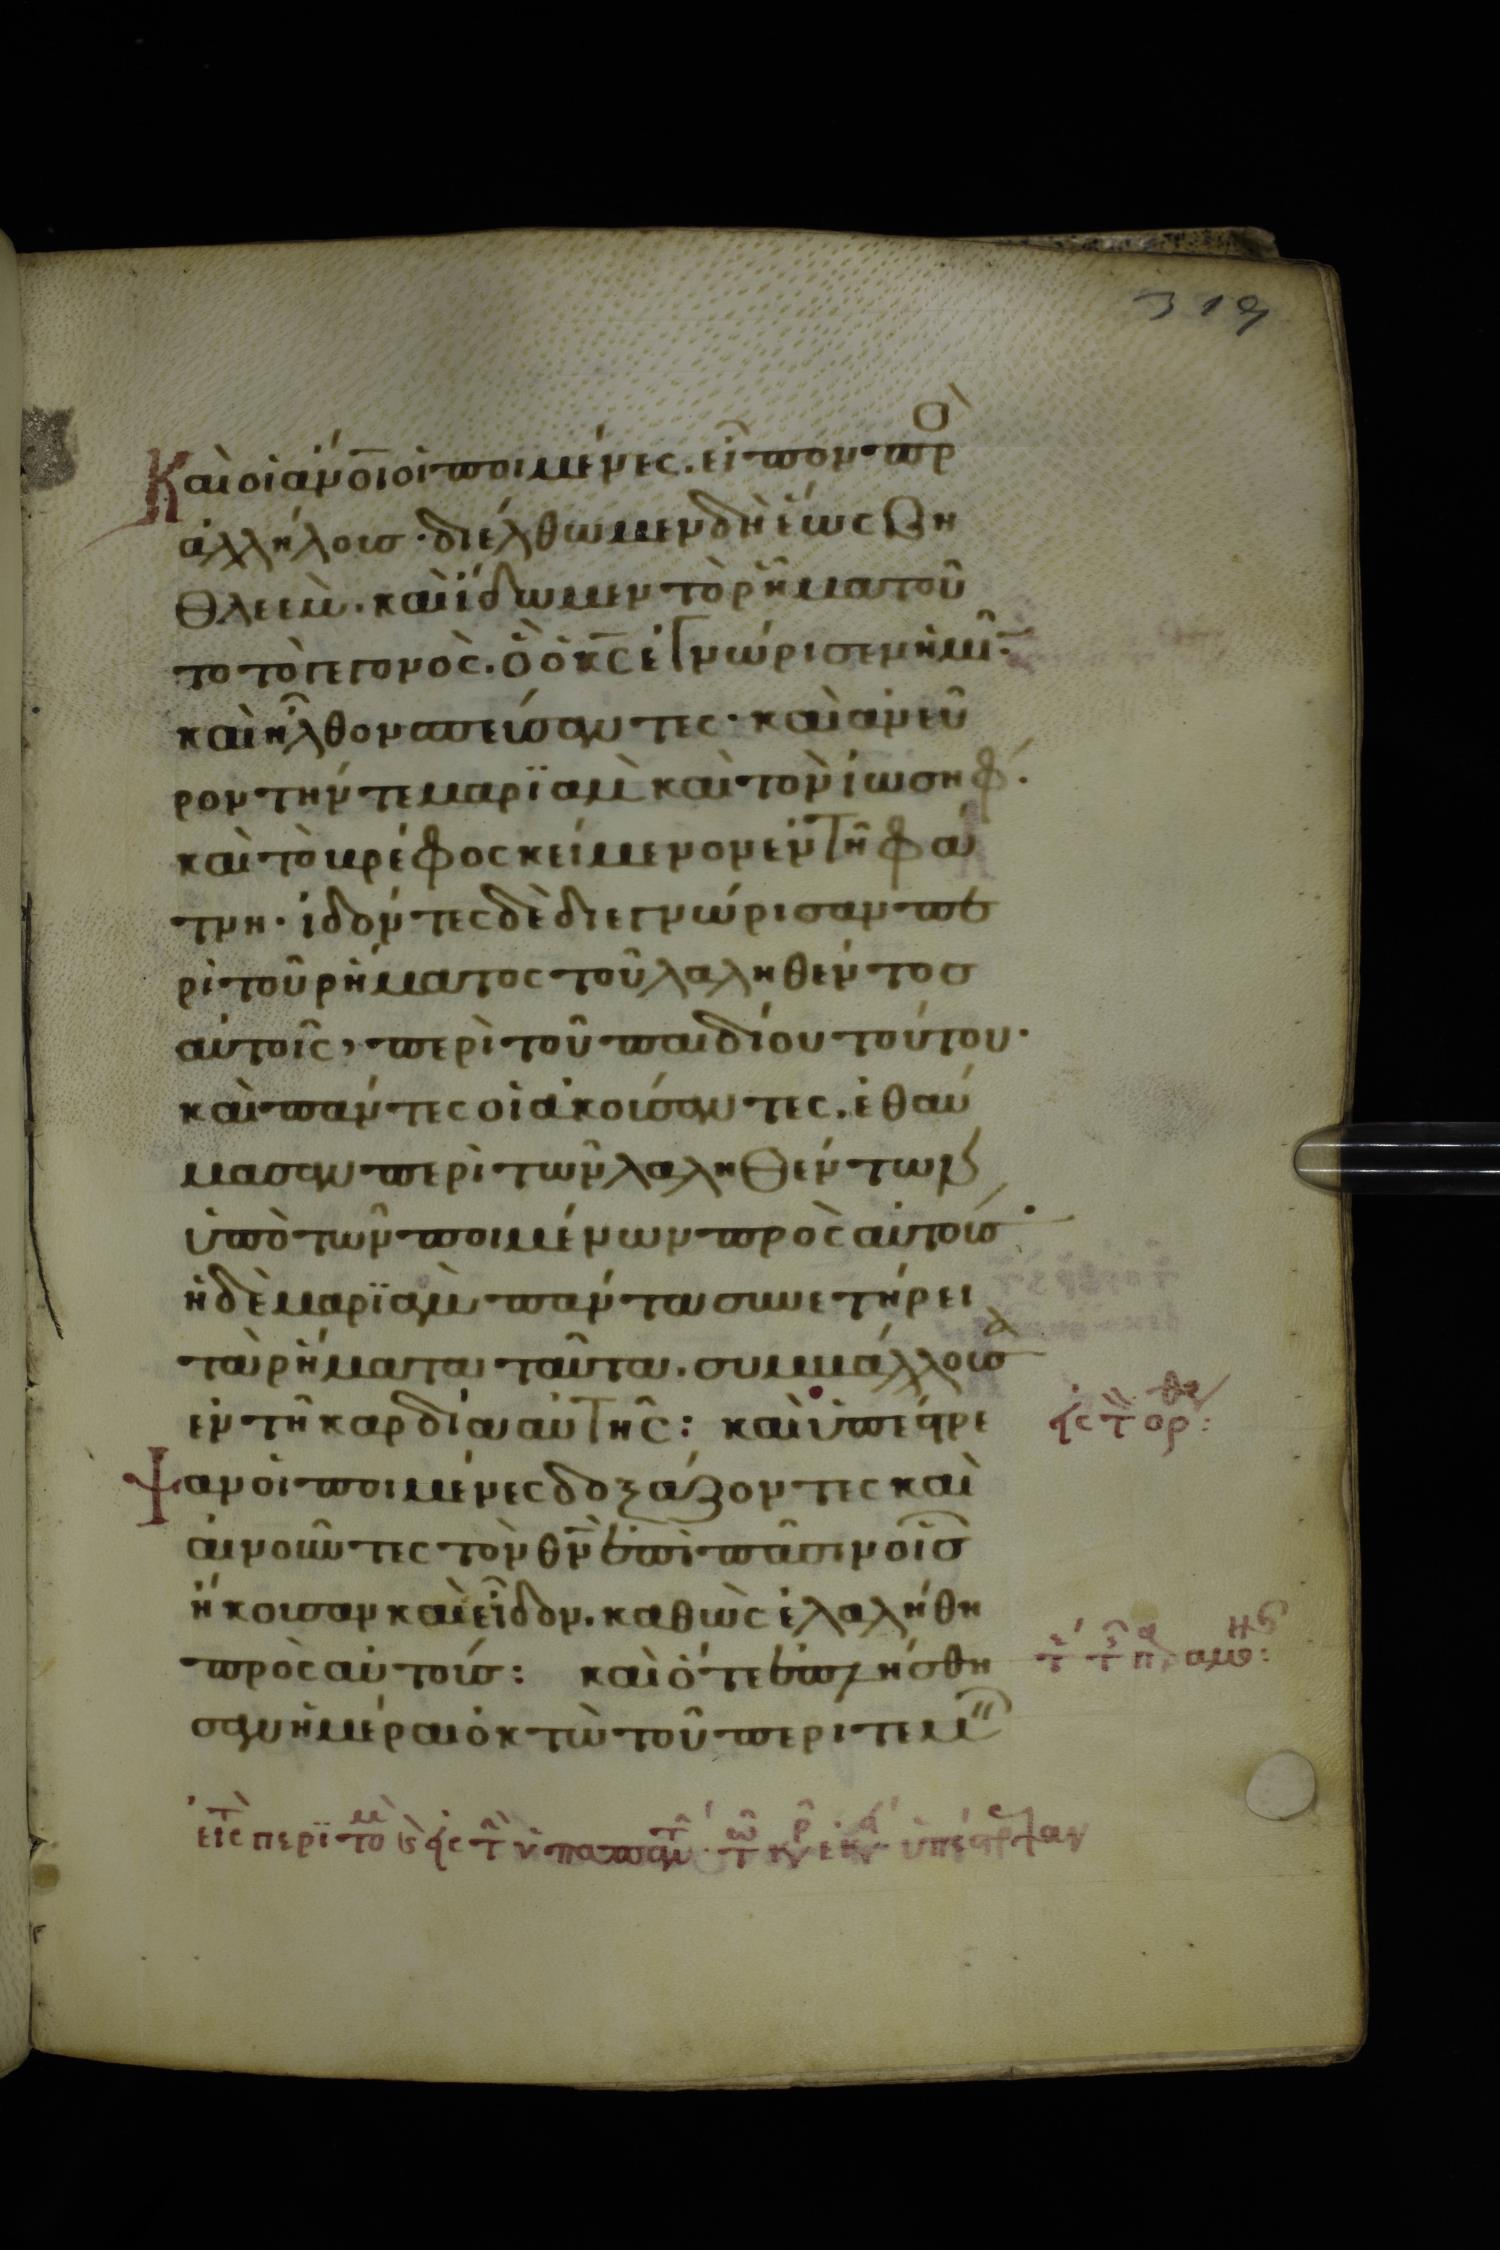 319
Καὶ οἱ ἄν̅ο̅ι̅ οἱ ποιμένες. εἶπον πρὸ
ἀλλήλοισ· διέλθωμεν δὴ ἕως Βη
θλεέμ. καὶ ἴδωμεν τὸ ῥῆμα τοῦ
το τὸ γεγονὸς. ὃ ὁ κ̅ς̅ ἐγνώρισεν ἡμῖ·
καὶ ἦλθον σπεύσαντες· καὶ ἀνεῦ
ρον τήν τε μαρϊὰμ καὶ τὸν ἰωσήφ.
καὶ τὸ βρέφος κείμενον ἐν τῆ φά
τνη· ἰδόντες δὲ διεγνώρισαν πε
ρὶ τοῦ ῥήματος τοῦ λαληθέντοσ
αὐτοῖς, περὶ τοῦ παιδίου τούτου.
καὶ πάντες οἱ ἀκούσαντες. ἐθαύ
μασαν περὶ τῶν λαληθέντων
ὑπὸ τῶν ποιμένων πρὸς αὐτούσ.
ἡ δὲ μαρϊὰμ πάντα συνετήρει
τὰ ῥήματα ταῦτα. συμβάλλουσα
ἐν τῆ καρδία αὐτῆς: καὶ ὑπέστρε
ψαν οἱ ποιμένες δοξάζοντες καὶ
αἰνοῦντες τὸν θ̅ν̅ ἐπὶ πᾶσιν οἷσ
ἤκουσαν καὶ εἶδον. καθὼς ἐλαλήθη
πρὸς αὐτούσ: καὶ ὅτε ἐπλήσθη
σαν ἡμέραι ὀκτὼ τοῦ περιτεμ